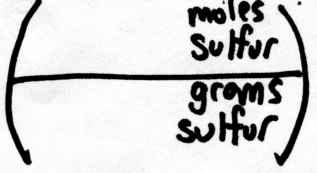 moles
sulfur
grams
sulfur